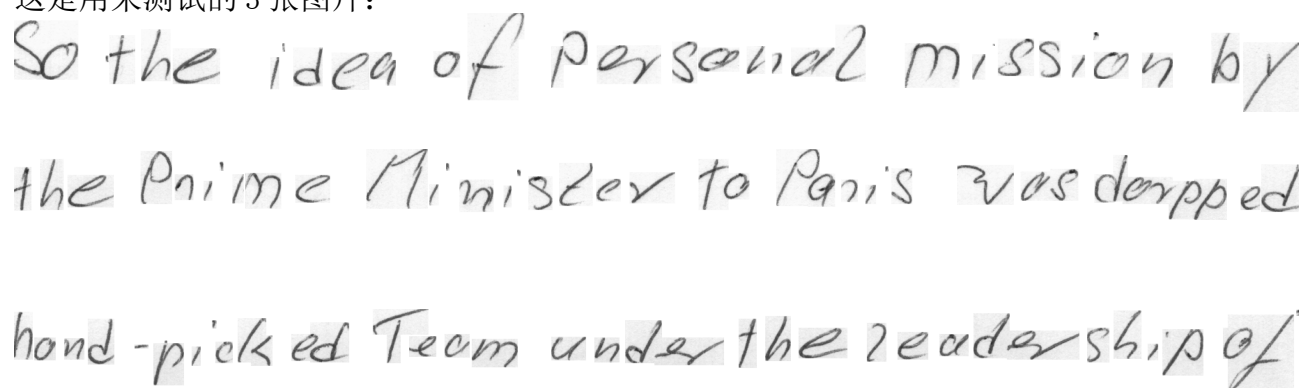 这是用来测试的3张图片：
So the idea of personal mission by
the Prime Minister to Paris was dorpped
hand-picked Team under the leadership of